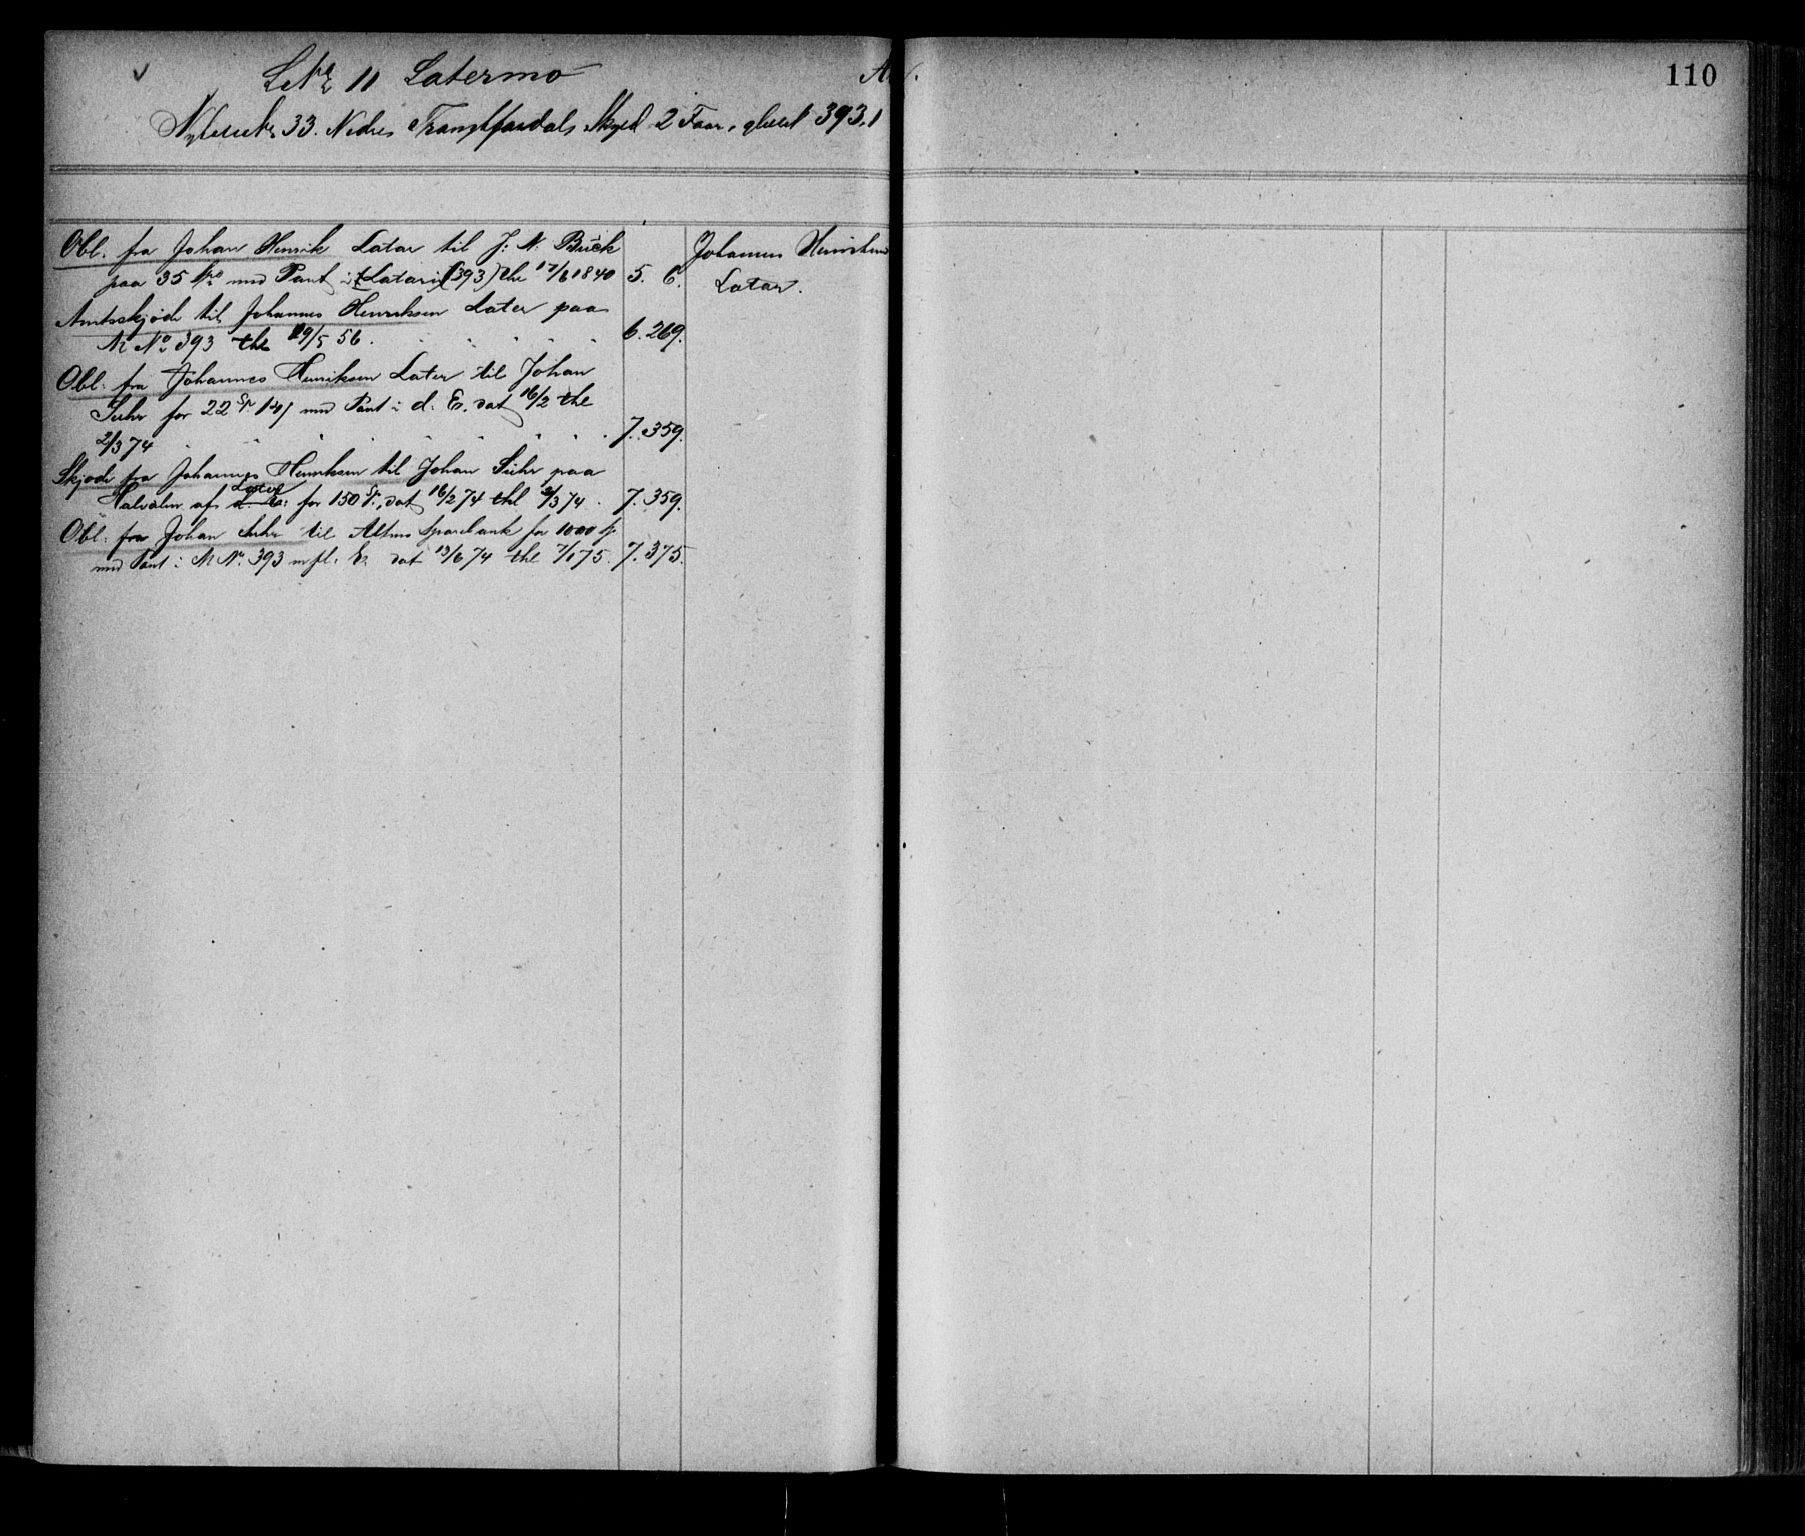 LNr 11 Latermo
110
33. Nedre Skyld 2 Faar, 393.1
Obl. fra Johan Henrik Latar til J: N. Buck
paa 35 med Pant i Latari (393) thl 17/6 1840 5. 6.
Amtsskjøde til Johannes Henriksen Later paa
M No 393 thl 19/5 56. 6. 269.
Obl. fra Johannes Henriksen Later til Johan
Suhr for 22 Sp med Pant i d. E. dat 16/2 thl
2/3 74 7. 359.
Skjøde fra Johannes Henriksen til Johan Suhr paa
Halvdelen af d. E. Later for 150 Sp. dat 16/2 74 thl 2/3 74. 7. 359.
Obl: fra Johan Suhr til Altens Sparebank for 1000
med Pant i M Nr. 393 m fl. E. dat 13/6 74 thl 7/1 75. 7. 375.
Johannes Henriksen
Latar.